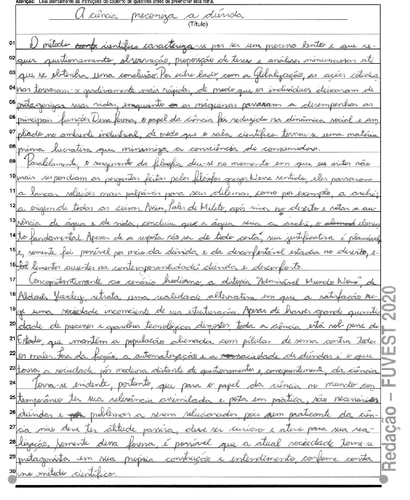 Atenção: Leia atentamente as instruções do caderno de questões antes de preencher esta folha.
A ciência preconiza a dúvida
(Título)
01 O método científico caracteriza-se por ser um processo lento e que re-
02 quer questionamento, observação, proposição de teses e análises minuciosas até
03 que se obtenha uma conclusão. Por outro lado, com a Globalização, as ações cotidia-
04 nas tornaram-se gradativamente mais rápidas, de modo que os indivíduos deixaram de
05 protagonizar suas vidas, enquanto as máquinas passaram a desempenhar as
06 principais funções. Dessa forma, o papel da ciência foi reduzido na dinâmica social e am-
07 pliado no ambiente industrial, de modo que o saber científico tornou-se uma matéria
08 prima lucrativa que minimiza a consciência do consumidor.
09 Paralelamente, o surgimento da filosofia deu-se no momento em que os mitos não
10 mais respondiam as perguntas feitas pelos filósofos gregos. Nesse sentido, eles passaram
11 a buscar soluções mais palpáveis para seus dilemas, como por exemplo, a arché;
12 a origem de todas as coisas. Assim, Tales de Mileto, após viver no deserto e notar a au-
13 sência de água e de vida, concluiu que a água seria a arché, o elemen-
14 to fundamental. Apesar de a resposta não ser de todo certa, sua justificativa é plausível
15 e, somente foi possível por meio da dúvida e da desconfortável estadia no deserto, e-
16 lementos ausentes na contemporaneidade: dúvida e desconforto.
17 Concomitantemente ao cenário hodierno, a distopia "Admirável Mundo Novo" de
18 Aldous Huxley, retrata uma realidade alternativa em que a satisfação re-
19 ge uma sociedade inconsciente de sua estruturação. Apesar de haver grande quanti-
20 dade de recursos e aparatos tecnológicos disponíveis, toda a ciência está sob posse do
21 Estado, que mantém a população alienada com pílulas de soma contra todos
22 os males. Fora da ficção, a automatização e a saciedade de dúvidas é o que
23 torna a sociedade pós moderna distante de questionamentos e, consequentemente, da ciência.
24 Torna-se evidente, portanto, que para o papel da ciência no mundo con-
25 temporâneo ter sua relevância assimilada e posta em prática, são necessárias
26 dúvidas e problemas a serem solucionados, pois um praticante da ciên-
27 cia não deve ter atitude passiva, deve ser curioso e ativo para sua rea-
28 lização, somente dessa forma, é possível que a atual sociedade torne-se
29 protagonista em sua própria construção e entendimento conforme consta
30 no método científico.
Redação – FUVEST 2020